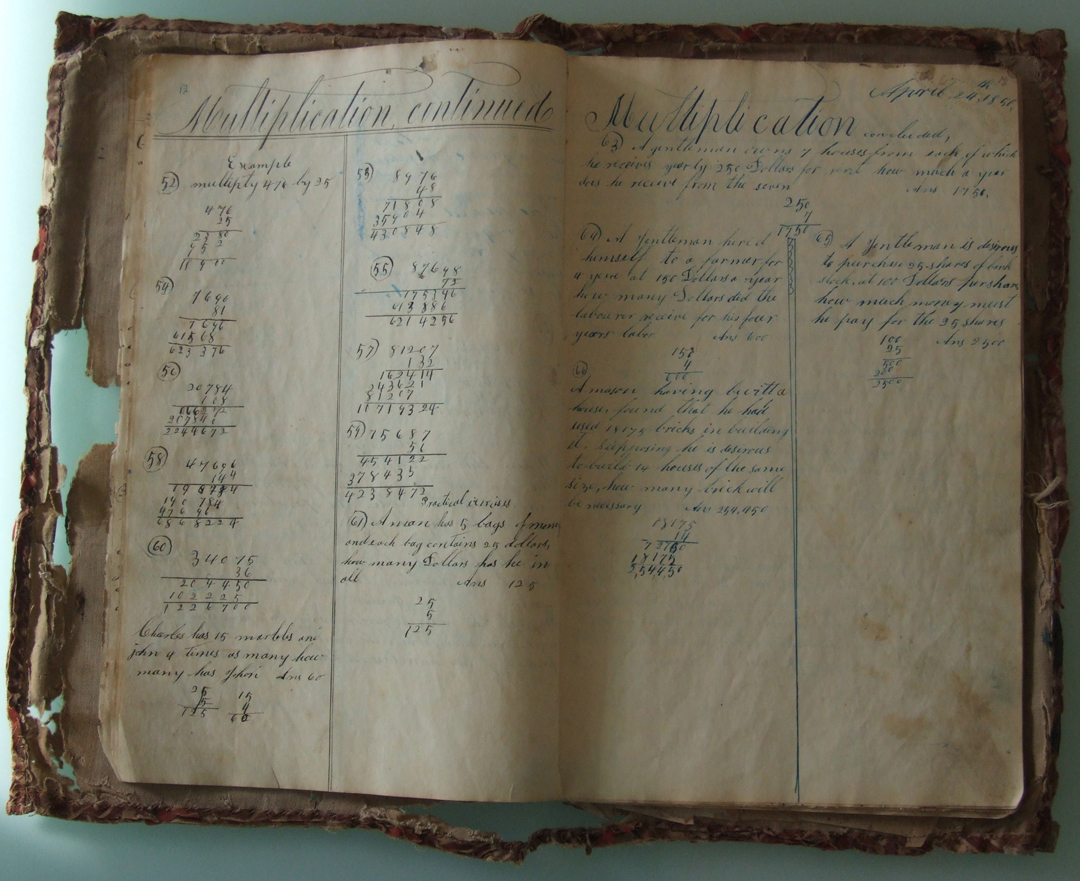 Multiplication continued
Example
52) multiply 476 by 25
476
25
2380
952
11900
54)
7696
81
7696
61568
623376
56)
20784
108
166272
207840
2244672
58)
47696
144
190784
190784
47696
6868224
60)
34075
36
204450
102225
1226700
Charles has 15 marbles and
john 4 times as many how
many has John Ans 60
25
5
125
15
4
60
53) 8976
48
71808
35904
430848
55) 87698
72
175396
613886
6214256
57) 81207
132
162414
243621
81207
10719324
59) 75687
56
454122
378435
4238472
Practical exercises
61) A man has 5 bags of money
and each bag contains 25 dollars,
how many Dollars has he in
all Ans 125
25
5
125
April 24th 1850,
Multiplication concluded,
63 A gentleman owns 7 houses from each of which
he receives yearly 250 Dollars for rent how much a year
does he receive from the seven Ans 1750.
250
7
1750
64) A Gentleman hired
himself to a farmer for
4 years at 150 Dollars a year
how many Dollars did the
labourer receive for his four
years labor Ans 600
150
4
600
66)
A mason having built a
house found that he had
used 18175 bricks in building
it. Supposing he is desirous
to build 14 houses of the same
size, how many brick will
be necessary Ans 254,450
18175
14
72700
18175
254450
65) A Gentleman is desirous
to purchase 25 shares of bank
stock, at 100 Dollars per share
how much money must
he pay for the 25 shares
Ans 2500
100
25
500
200
2500